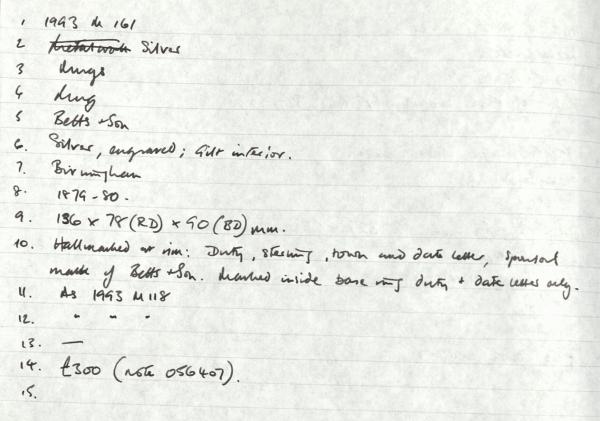 1 1993 M 161
2 Metalwork Silver
3 Mugs
4 Mug
5 Betts + Son
6. Silver, engraved; Gilt interior.
7. Birmingham
8. 1879-80.
9. 136 x 78 (RD) x 90 (BD) mm.
10. Hallmarked at rim: Duty, sterling, town and date letter, sponsors
mark of Betts + Son. Marked inside base ring duty + date letter only.
11. As 1993 M 118
12. " " "
13. —
14. £300 (note 056407).
15.